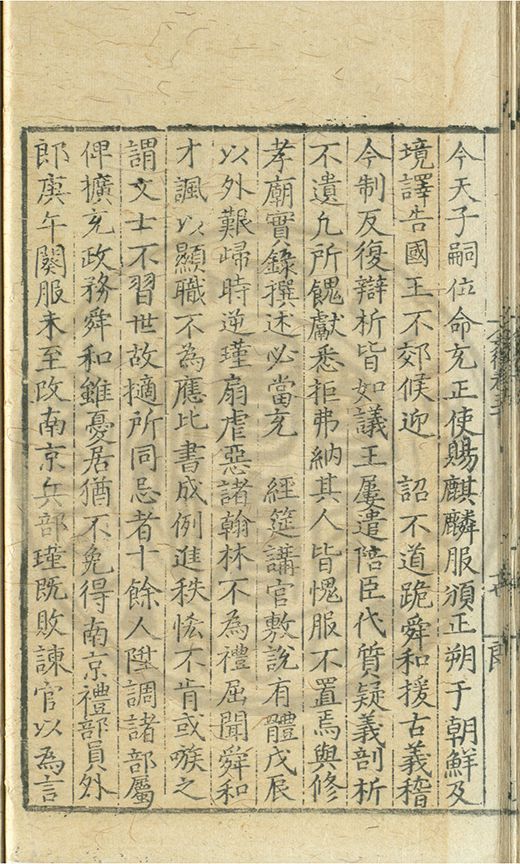 今天子嗣位命充正使賜麒麟服頒正朔于朝鮮及
境譯告國王不郊候迎　詔不道跪舜和援古義稽
今制反復辯析皆如議王屢遣陪臣代質疑義剖析
不遺凢所餽獻悉拒弗納其人皆愧服不置焉與修
孝廟實錄撰述必當充　經筵講官敷說有體戊辰
以外艱歸時逆瑾扇虐惡諸翰林不為禮屈聞舜和
才諷以顯職不為應比書成例進秩恡不肯或嗾之
謂文士不習世故擿所同忌者十餘人陞調諸部屬
俾擴充政務舜和雖憂居猶不免得南京禮部員外
郎庚午闋服未至改南京兵部瑾既敗諫官以為言